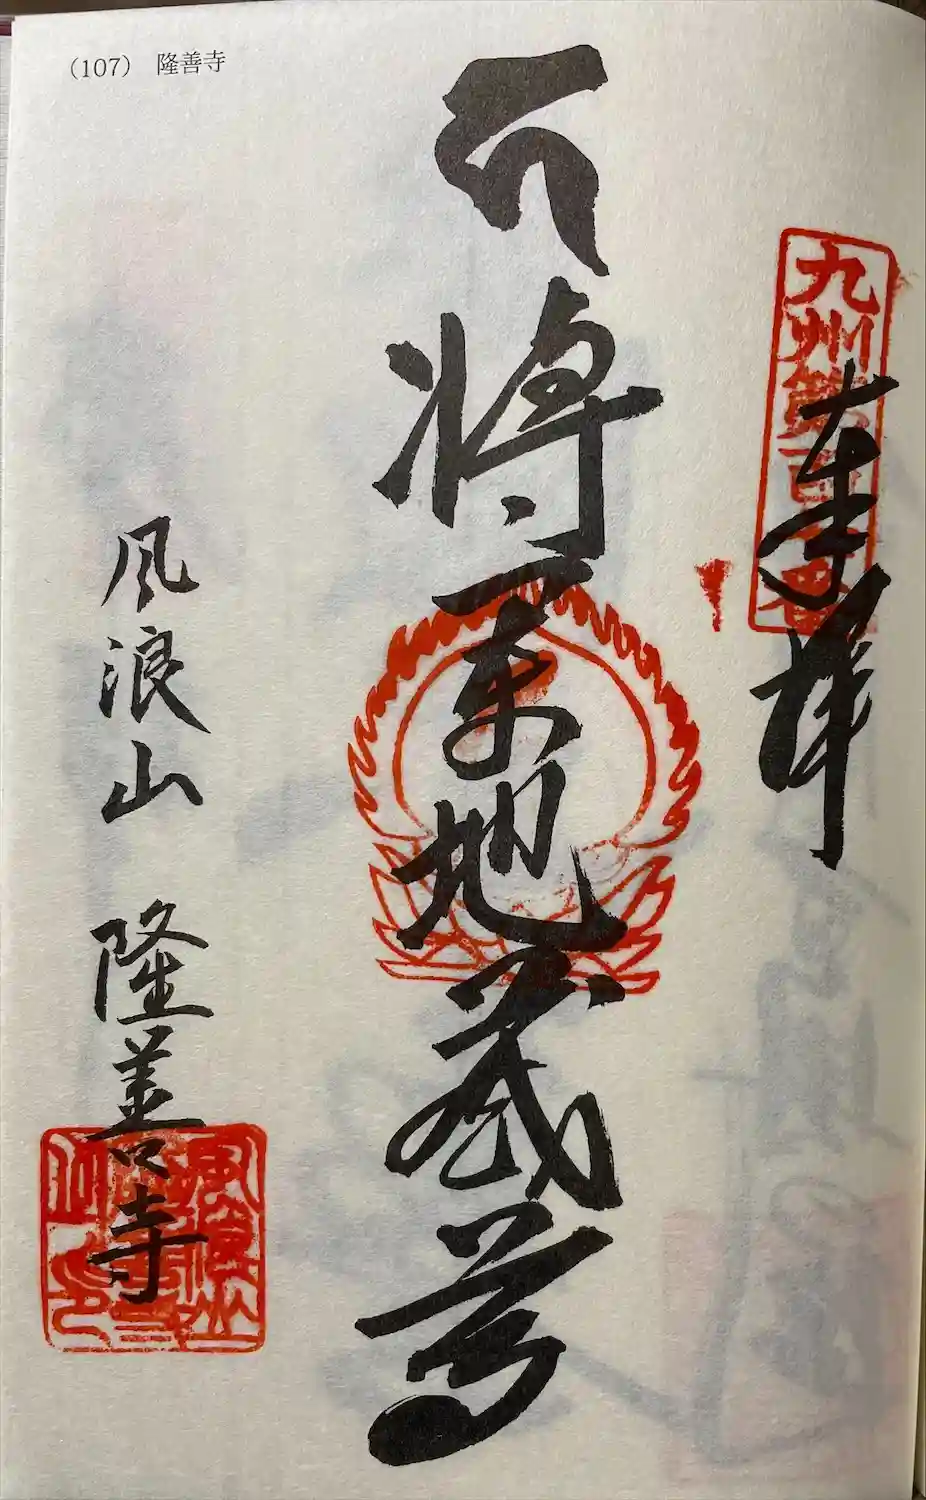 (107) 隆善寺
九州第百
奉拝
将軍地蔵尊
風浪山 隆善寺